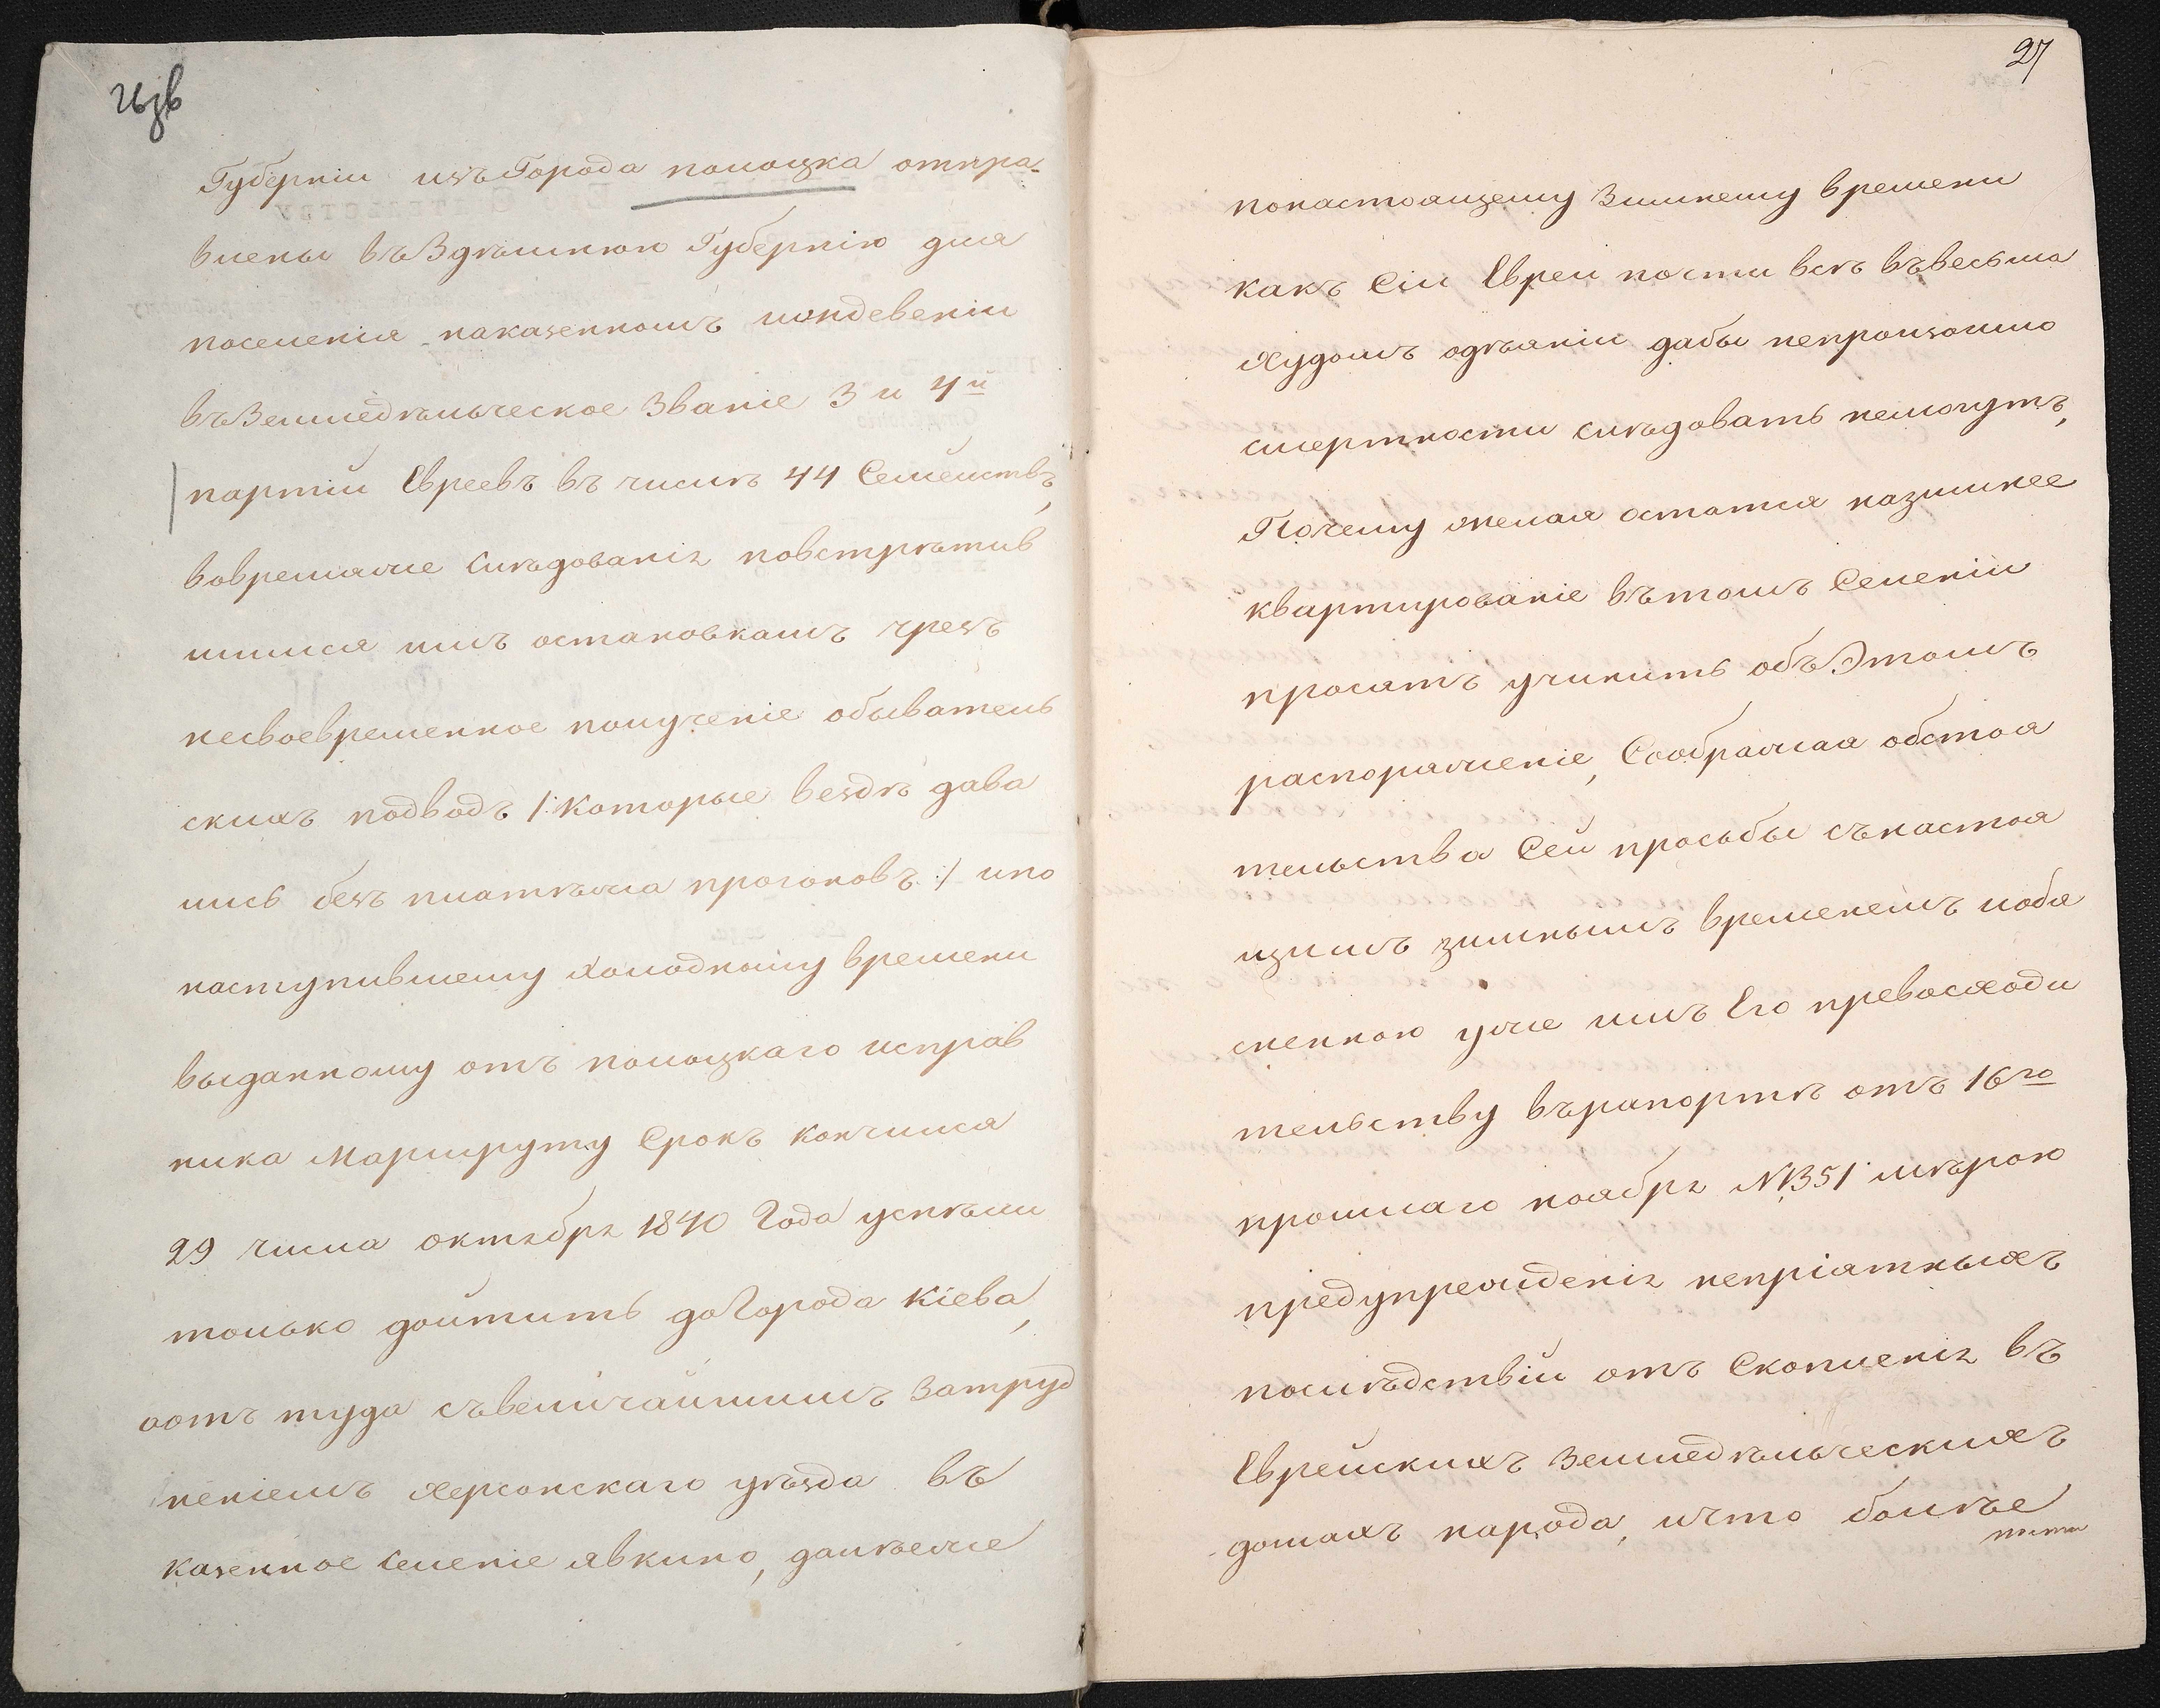 Губерніи изъ Города полоцка отпра-
влены въ Здѣшнюю Губернію для
поселенія на казенномъ иждевеніи
въ Земледѣльческое Званіе 3 и 4й
партіи Евреевъ въ числѣ 44 Семействъ,
во время же слѣдованія повстрѣтив
шимся имъ остановкамъ чрезъ
несвоевременное полученіе обыватель
скихъ подводъ /: которые вездѣ дава
лись безъ платежа прогоновъ :/ и по
наступившему холодному времени
выданному отъ полоцкаго исправ
ника Маршруту Срокъ кончился
29 числа октября 1840 Года успѣли
только дойтить до Города Кіева,
а отъ туда съ величайшимъ Затруд
неніемъ херсонскаго уѣзда въ
казенное селеніе явкино, далѣе же
27
по настоящему Зимнему времени
какъ Сіи Евреи почти всѣ въ весьма
худомъ одѣяніи дабы непроизошло
смертности слѣдовать немогутъ,
Почему желая остатся на зимнее
квартированіе въ томъ Селеніи
просятъ учинить объ Этомъ
распоряженіе, Соображая обстоя
тельства Сей просьбы съ настоя
щимъ зимнымъ временемъ и объя
сненною уже имъ Его превосходи
тельству въ рапортѣ отъ 16го
прошлаго ноября №351 мѣрою
предупрежденія непріятныхъ
послѣдствій отъ Скопленія въ
Еврейскихъ Земледѣльческихъ
домахъ народа, и что болѣе
пяти